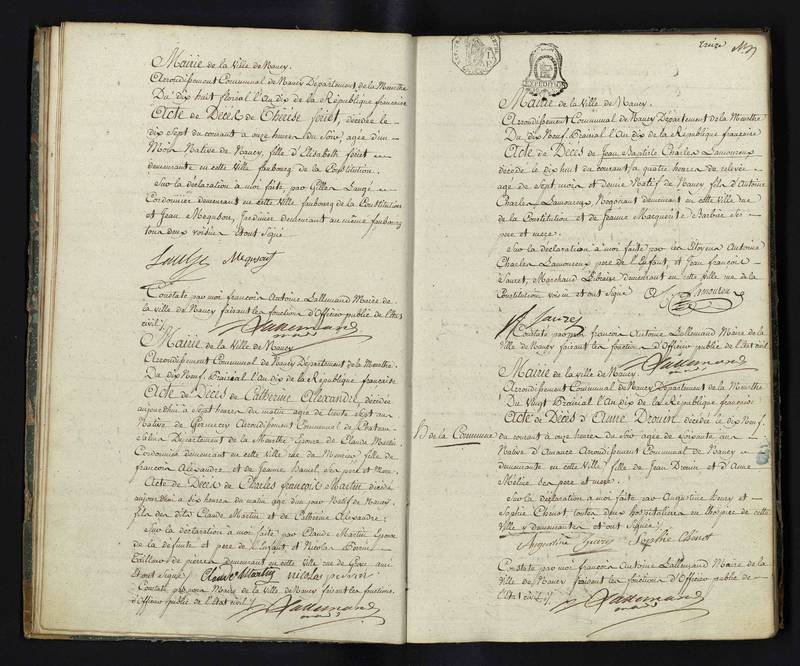 Mairie de la Ville de Nancy.
Arrondissement Communal de Nancy Département de la Meurthe
Du dix huit floréal l'An dix de la République française
Acte de Décès de Thérèse foret, décédée le
dix Sept du courant à onze heures du Soir, agée d'un
Mois Native de Nancy, fille d'Elisabeth foret
demeurante en cette Ville faubourg de la Constitution.
Sur la déclaration à moi faite, par Gilles
Cordonnier demeurant en cette Ville faubourg de la Constitution
et Jean Jardinier demeurant au même faubourg
tous deux voisins Et ont Signé
Constaté par moi françois Antoine Lallemand Maire de
la ville de Nancy faisant les fonctions d'Officier public de l'état
civil
Lallemand
Mairie de la Ville de Nancy
Arrondissement Communal de Nancy Département de la Meurthe.
Du dix Neuf Prairial l'An dix de la République française
Acte de Décès de Catherine Alexandre, décédée
aujourd'hui à Sept heures du matin agée de trente sept ans
Native de Arrondissement Communal de Chateau
Salins Département de la Meurthe Epouse de Claude Martin
Cordonnier demeurant en cette Ville rue de fille de
françois Alexandre et de Jeanne ses père et Mère.
Acte de Décès de Charles françois Martin décédé
aujourd'hui à six heures du matin agé d'un jour Natif de Nancy
fils des dits Claude Martin et de Catherine Alexandre;
Sur la déclaration à moi faite par Claude Martin Epoux
de la défunte et père de l'Enfant et Nicolas
Tailleur de pierres demeurant en cette Ville rue de
Et ont Signé Claude Martin nicolas
Constaté par moi Maire de la Ville de Nancy faisant les fonctions
d'Officier public de l'état Civil
Lallemand
treize
Mairie de la Ville de Nancy.
Arrondissement Communal de Nancy Département de la Meurthe
Du dix Neuf Prairial l'An dix de la République française
Acte de Décès de Jean Baptiste Charles Lamoureux
décédé le dix huit du courant à quatre heures de relevée
agé de Sept mois et demi Natif de Nancy fils d'Antoine
Charles Lamoureux Négociant demeurant en cette Ville rue
de la Constitution et de Jeanne Marguerite Barbine Ses
père et mère.
Sur la déclaration à moi faite par les Citoyens Antoine
Charles Lamoureux père de l'Enfant, et Jean françois
Marchand Libraire demeurant en cette Ville rue de la
Constitution voisin et ont Signé Lamoureux
Constaté par moi françois Antoine Lallemand Maire de la
Ville de Nancy faisant les fonctions d'Officier public de l'état civil
Lallemand
Mairie de la Ville de Nancy.
Arrondissement Communal de Nancy Département de la Meurthe
Du Vingt Prairial l'An dix de la République française
Acte de Décès d'Anne Drouin décédée le dix Neuf
H de la Commune
du courant à onze heures du Soir agée de soixante ans
Native d'Amance Arrondissement Communal de Nancy
demeurante en cette Ville, fille de Jean Drouin et d'Anne
ses père et mère.
Sur la déclaration à moi faite par Augustine et
Sophie Chenot toutes deux hospitalières en l'hospice de cette
Ville y demeurantes et ont Signées
Augustine Sophie Chenot
Constaté par moi françois Antoine Lallemand Maire de la
Ville de Nancy faisant les fonctions d'Officier public de
l'état civil
Lallemand